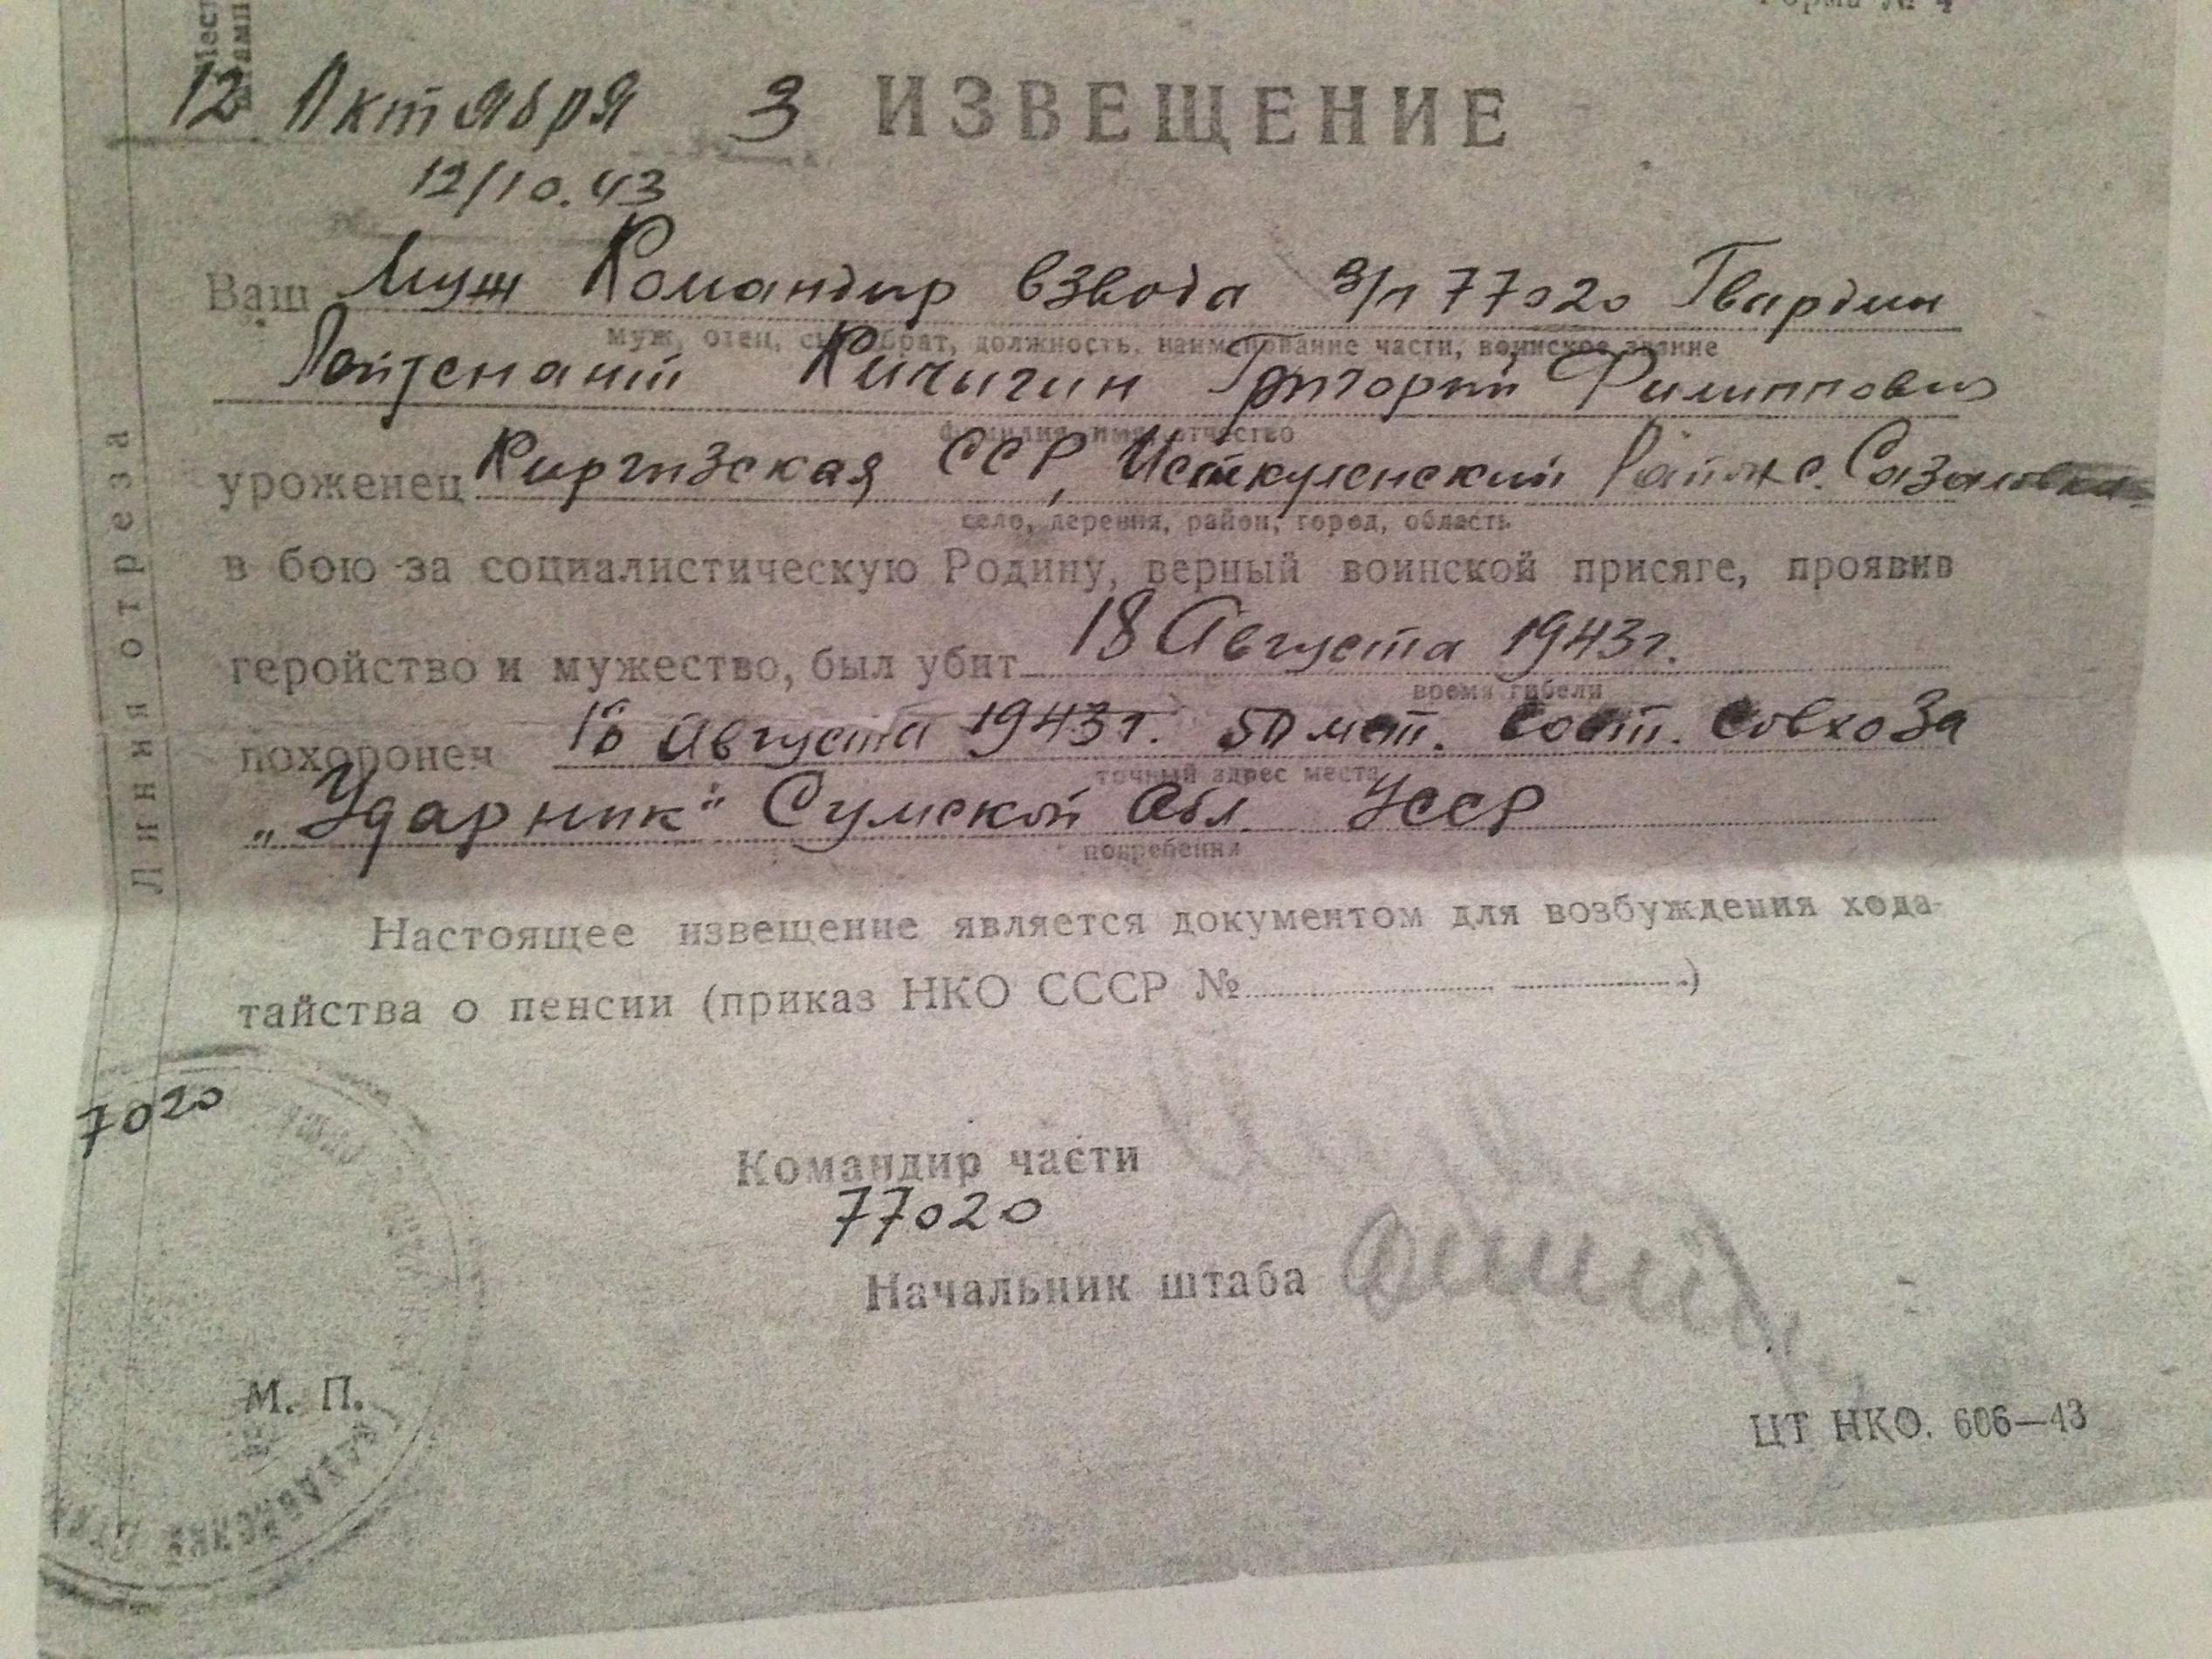 Форма № 4
12 Октября 3 ИЗВЕЩЕНИЕ
12/10.43
Ваш Муж Командир взвода п/п 77020 Гвардии
муж, отец, сын, брат, должность, наименование части, воинское звание
Лейтенант Кичигин Григорий Филиппович
фамилия, имя, отчество
уроженец Киргизская ССР, Исткуленский Район с. Сазановка
село, деревня, район, город, область
в бою за социалистическую Родину, верный воинской присяге, проявив
геройство и мужество, был убит 18 Августа 1943г.
время гибели
похоронен 18 Августа 1943г. 50 мет. вост. совхоза
точный адрес места
„Ударник" Сумской Обл. УССР
погребения
Настоящее извещение является документом для возбуждения хода-
тайства о пенсии (приказ НКО СССР № )
7020
Командир части
77020
Начальник штаба
М. П.
ЦТ НКО. 606—43
Линия отреза